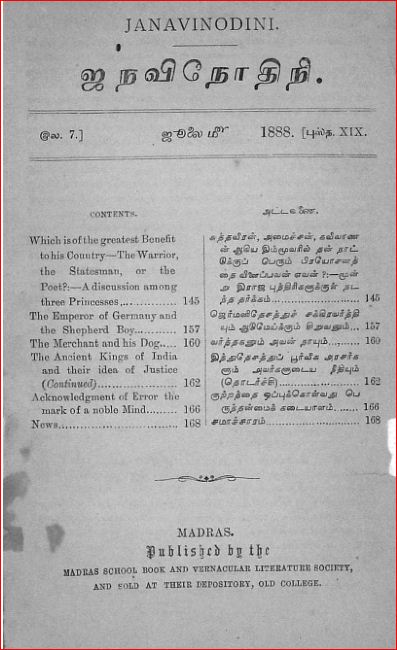 JANAVINODINI.
ஜநவிநோதிநி.
இல. 7.] ஜூலை மீ 1888. [புஸ்த. XIX.
CONTENTS.
Which is of the greatest Benefit
to his Country—The Warrior,
the Statesman, or the
Poet?:—A discussion among
three Princesses,............... 145
The Emperor of Germany and
the Shepherd Boy............ 157
The Merchant and his Dog..... 160
The Ancient Kings of India
and their idea of Justice
(Continued)..................... 162
Acknowledgment of Error the
mark of a noble Mind......... 166
News................................. 168
அட்டவணை.
சுத்தவீரன், அமைச்சன், கவிவாண
ன் ஆகிய இம்மூவரில் தன் நாட்
டுக்குப் பெரும் பிரயோசனத்
தை விளைப்பவன் எவன்?:—மூன்
று இராஜ புத்திரிகளுக்குள் நட
ந்த தர்க்கம்........................ 145
ஜெர்மனிதேசத்துச் சக்ரவர்த்தி
யும் ஆடுமேய்க்கும் சிறுவனும்... 157
வர்த்தகனும் அவன் நாயும்...... 160
இந்துதேசத்துப் பூர்வீக அரசர்க
ளும் அவர்களுடைய நீதியும்
(தொடர்ச்சி)..................... 162
குற்றத்தை ஒப்புக்கொள்வது பெ
ருந்தன்மைக் கடையாளம்....... 166
சமாச்சாரம்........................ 168
MADRAS.
Published by the
MADRAS SCHOOL BOOK AND VERNACULAR LITERATURE SOCIETY,
AND SOLD AT THEIR DEPOSITORY, OLD COLLEGE.